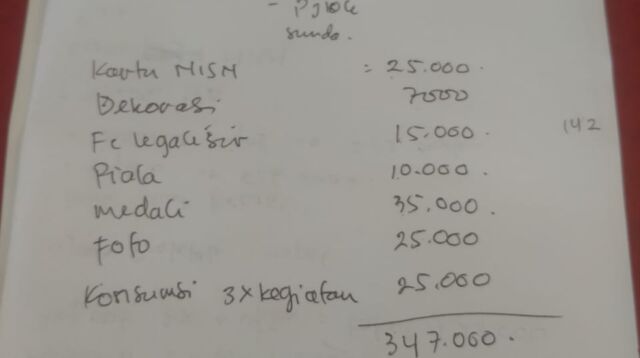 sunda.
Kartu NISN : 25.000.
Dekorasi 7000
Fc legalisir 15.000. 142
Piala 10.000.
medali 35.000.
foto 25.000
Konsumsi 3x kegiatan 25.000
347.000.